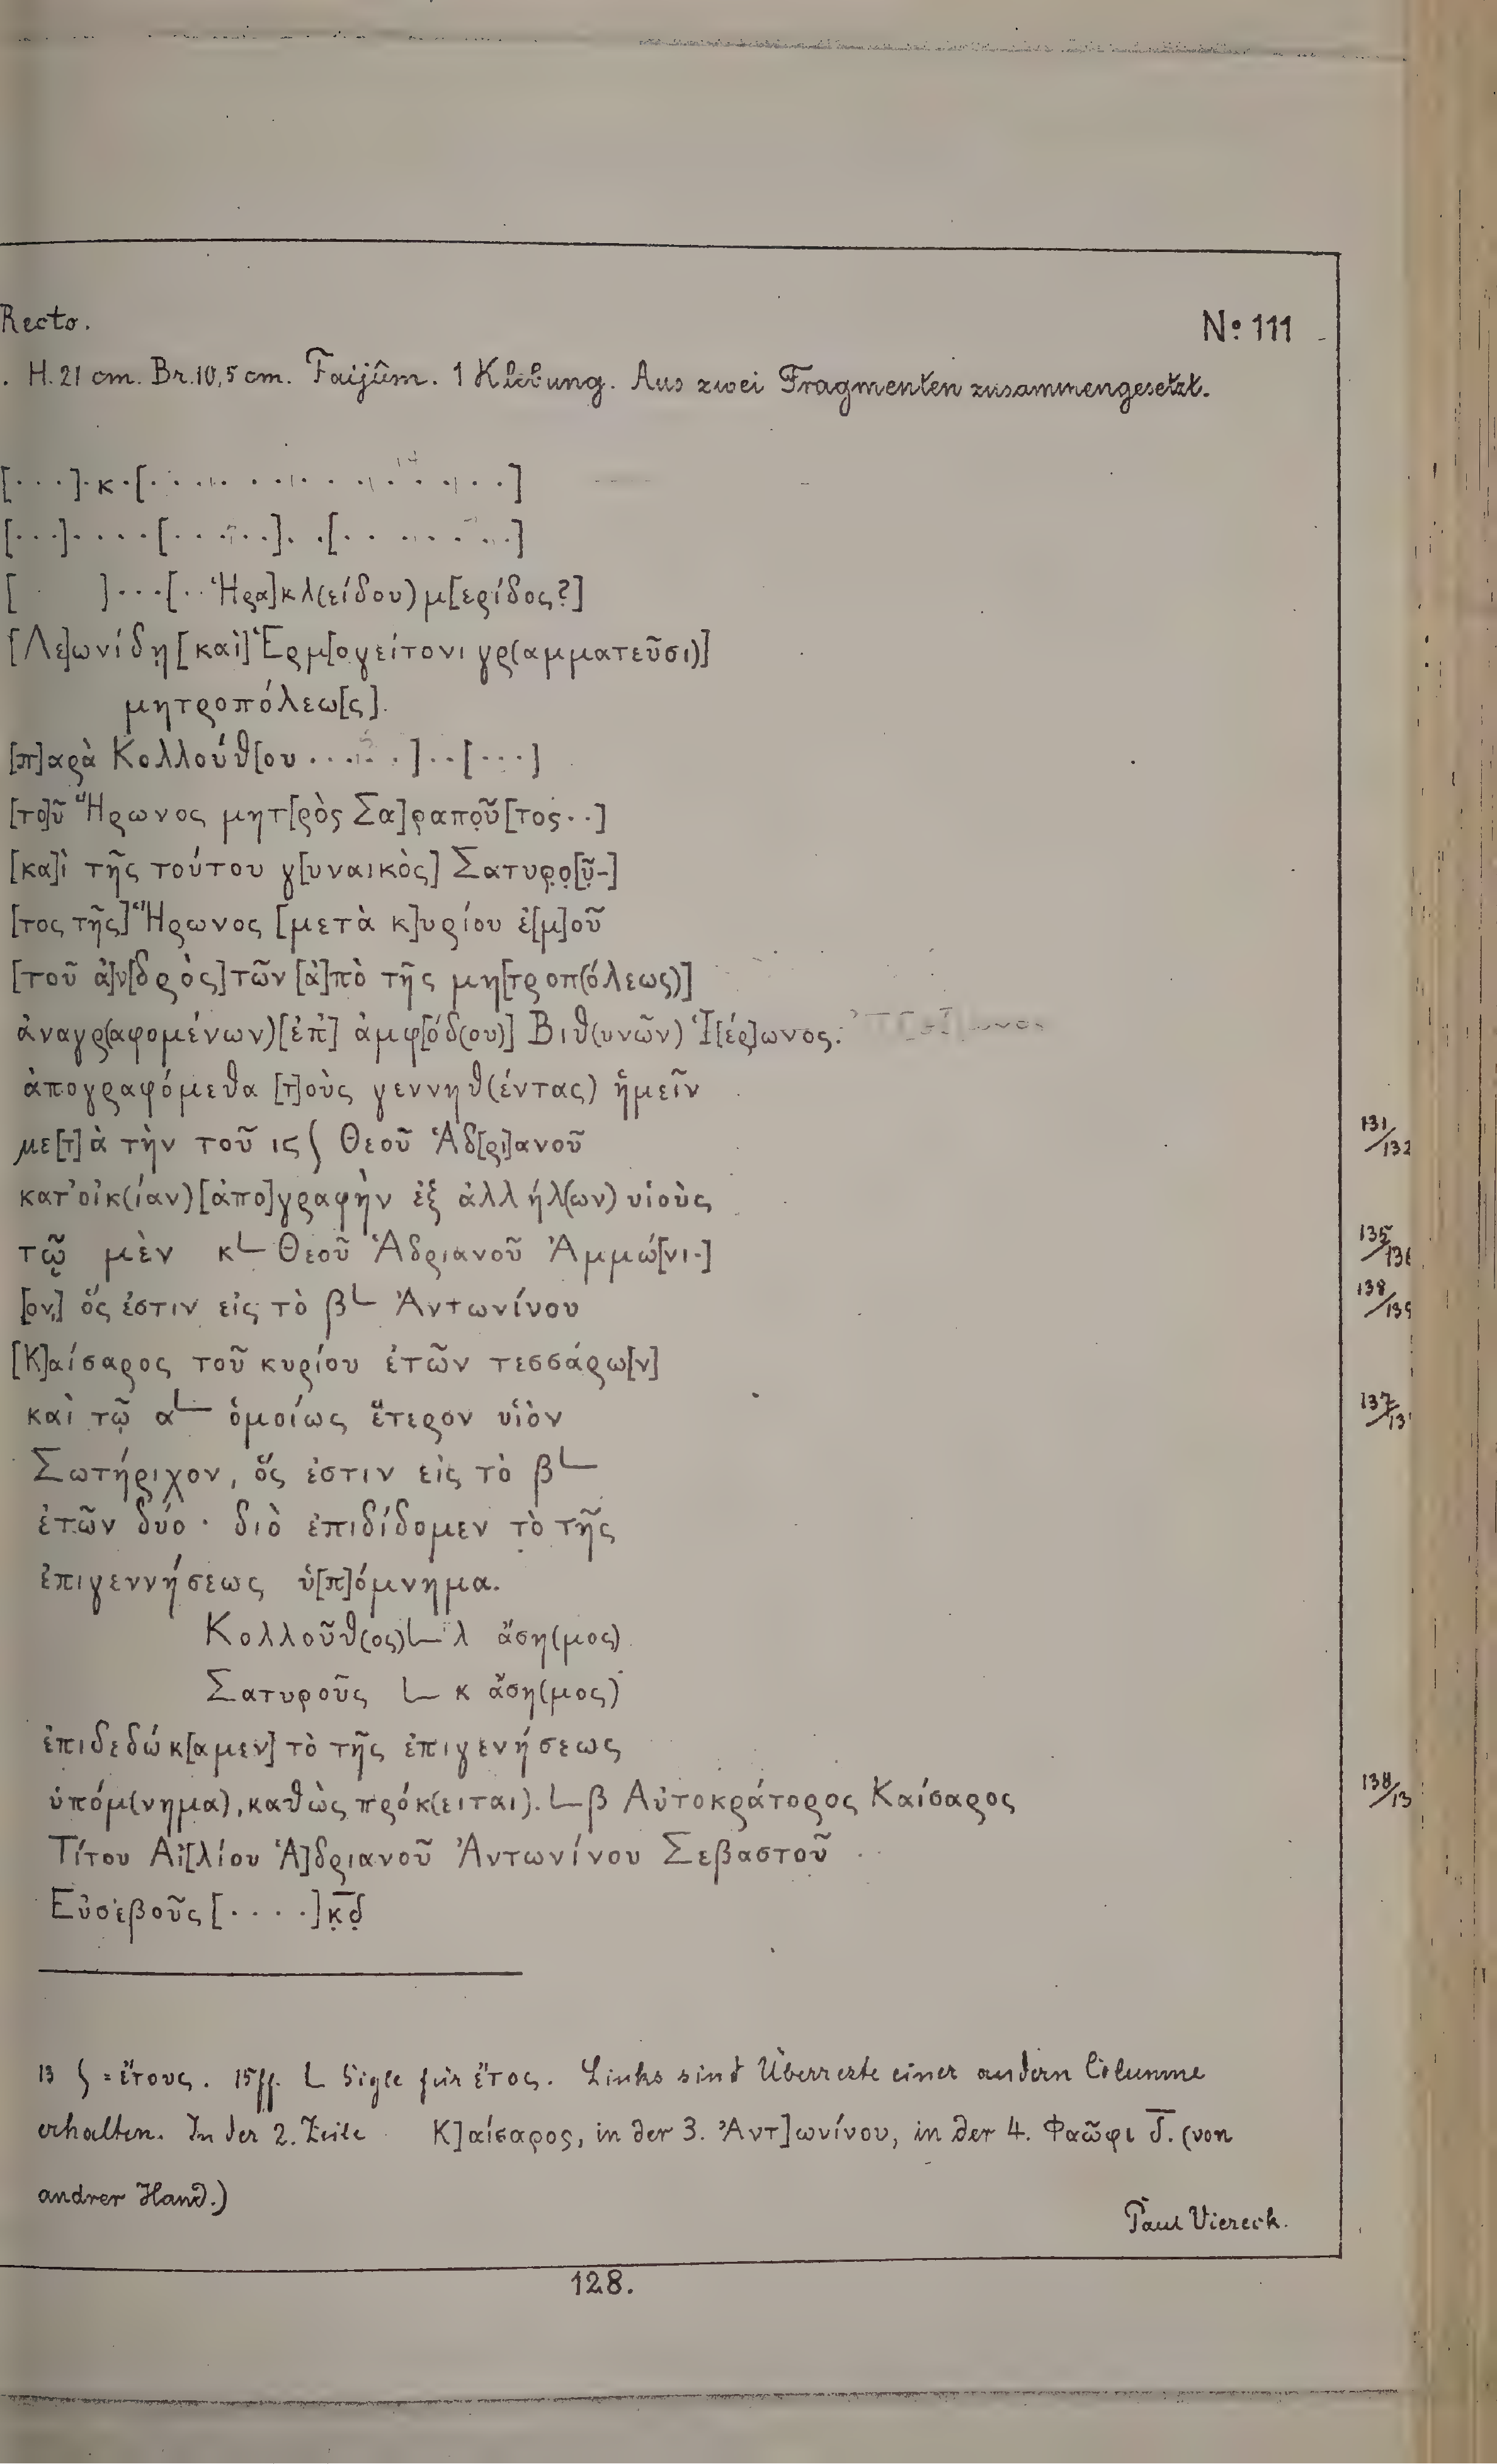 Recto. Nº 111
. H. 21 cm. Br. 10,5 cm. Faijûm. 1 Klebung. Aus zwei Fragmenten zusammengesetzt.
[· · ·]·κ·[· · · · · · · · · · · · · ·]
[· · ·]· · · ·[· · · · · ·]· ·[· · · · · · · ·]
[ ]· · ·[· · Ἡρα]κλ(είδου) μ[ερίδος?]
[Λε]ωνίδῃ [καὶ] Ἑρμ[ογείτονι γρ(αμματεῦσι)]
μητροπόλεω[ς].
[π]αρὰ Κολλούθ[ου · · · · · · ]· ·[· · ·]
[το]ῦ Ἥρωνος μητ[ρὸς Σα]ραποῦ[τος · ·]
[κα]ὶ τῆς τούτου γ[υναικὸς] Σατυρο[ῦ-]
[τος τῆς] Ἥρωνος [μετὰ κ]υρίου ἐ[μ]οῦ
[τοῦ ἀ]ν[δρὸς] τῶν [ἀ]πὸ τῆς μη[τροπ(όλεως)]
ἀναγρ(αφομένων) [ἐπ'] ἀμφ[όδ(ου)] Βιθ(υνῶν) Ἰ[έρ]ωνος.
ἀπογραφόμεθα [τ]οὺς γεννηθ(έντας) ἡμεῖν
με[τ]ὰ τὴν τοῦ ις ʃ Θεοῦ Ἁδ[ρι]ανοῦ 131/132
κατ' οἰκ(ίαν) [ἀπο]γραφὴν ἐξ ἀλλήλ(ων) υἱοὺς
τῷ μὲν κ L Θεοῦ Ἁδριανοῦ Ἀμμώ[νι-] 135/136
[ον,] ὅς ἐστιν εἰς τὸ β L Ἀντωνίνου 138/139
[Κ]αίσαρος τοῦ κυρίου ἐτῶν τεσσάρω[ν]
καὶ τῷ α L ὁμοίως ἕτερον υἱὸν 137/13
Σωτήριχον, ὅς ἐστιν εἰς τὸ β L
ἐτῶν δύο · διὸ ἐπιδίδομεν τὸ τῆς
ἐπιγεννήσεως ὑ[π]όμνημα.
Κολλοῦθ(ος) L λ ἄση(μος)
Σατυροῦς L κ ἄση(μος)
ἐπιδεδώκ[αμεν] τὸ τῆς ἐπιγενήσεως
ὑπόμ(νημα), καθὼς πρόκ(ειται). L β Αὐτοκράτορος Καίσαρος 138/13
Τίτου Αἰ[λίου Ἁ]δριανοῦ Ἀντωνίνου Σεβαστοῦ
Εὐσεβοῦς [· · · ·] κ̣δ̣
13 ʃ = ἔτους. 15ff. L Sigle für ἔτος. Links sind Überreste einer andern Columne
erhalten. In der 2. Zeile Κ]αίσαρος, in der 3. Ἀντ]ωνίνου, in der 4. Φαῶφι δ̅. (von
andrer Hand.)
Paul Viereck.
128.